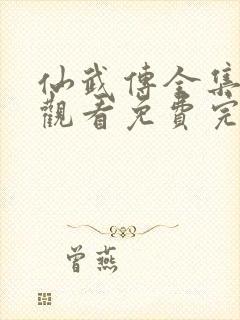 仙武傳全集
觀看免費完
曾燕